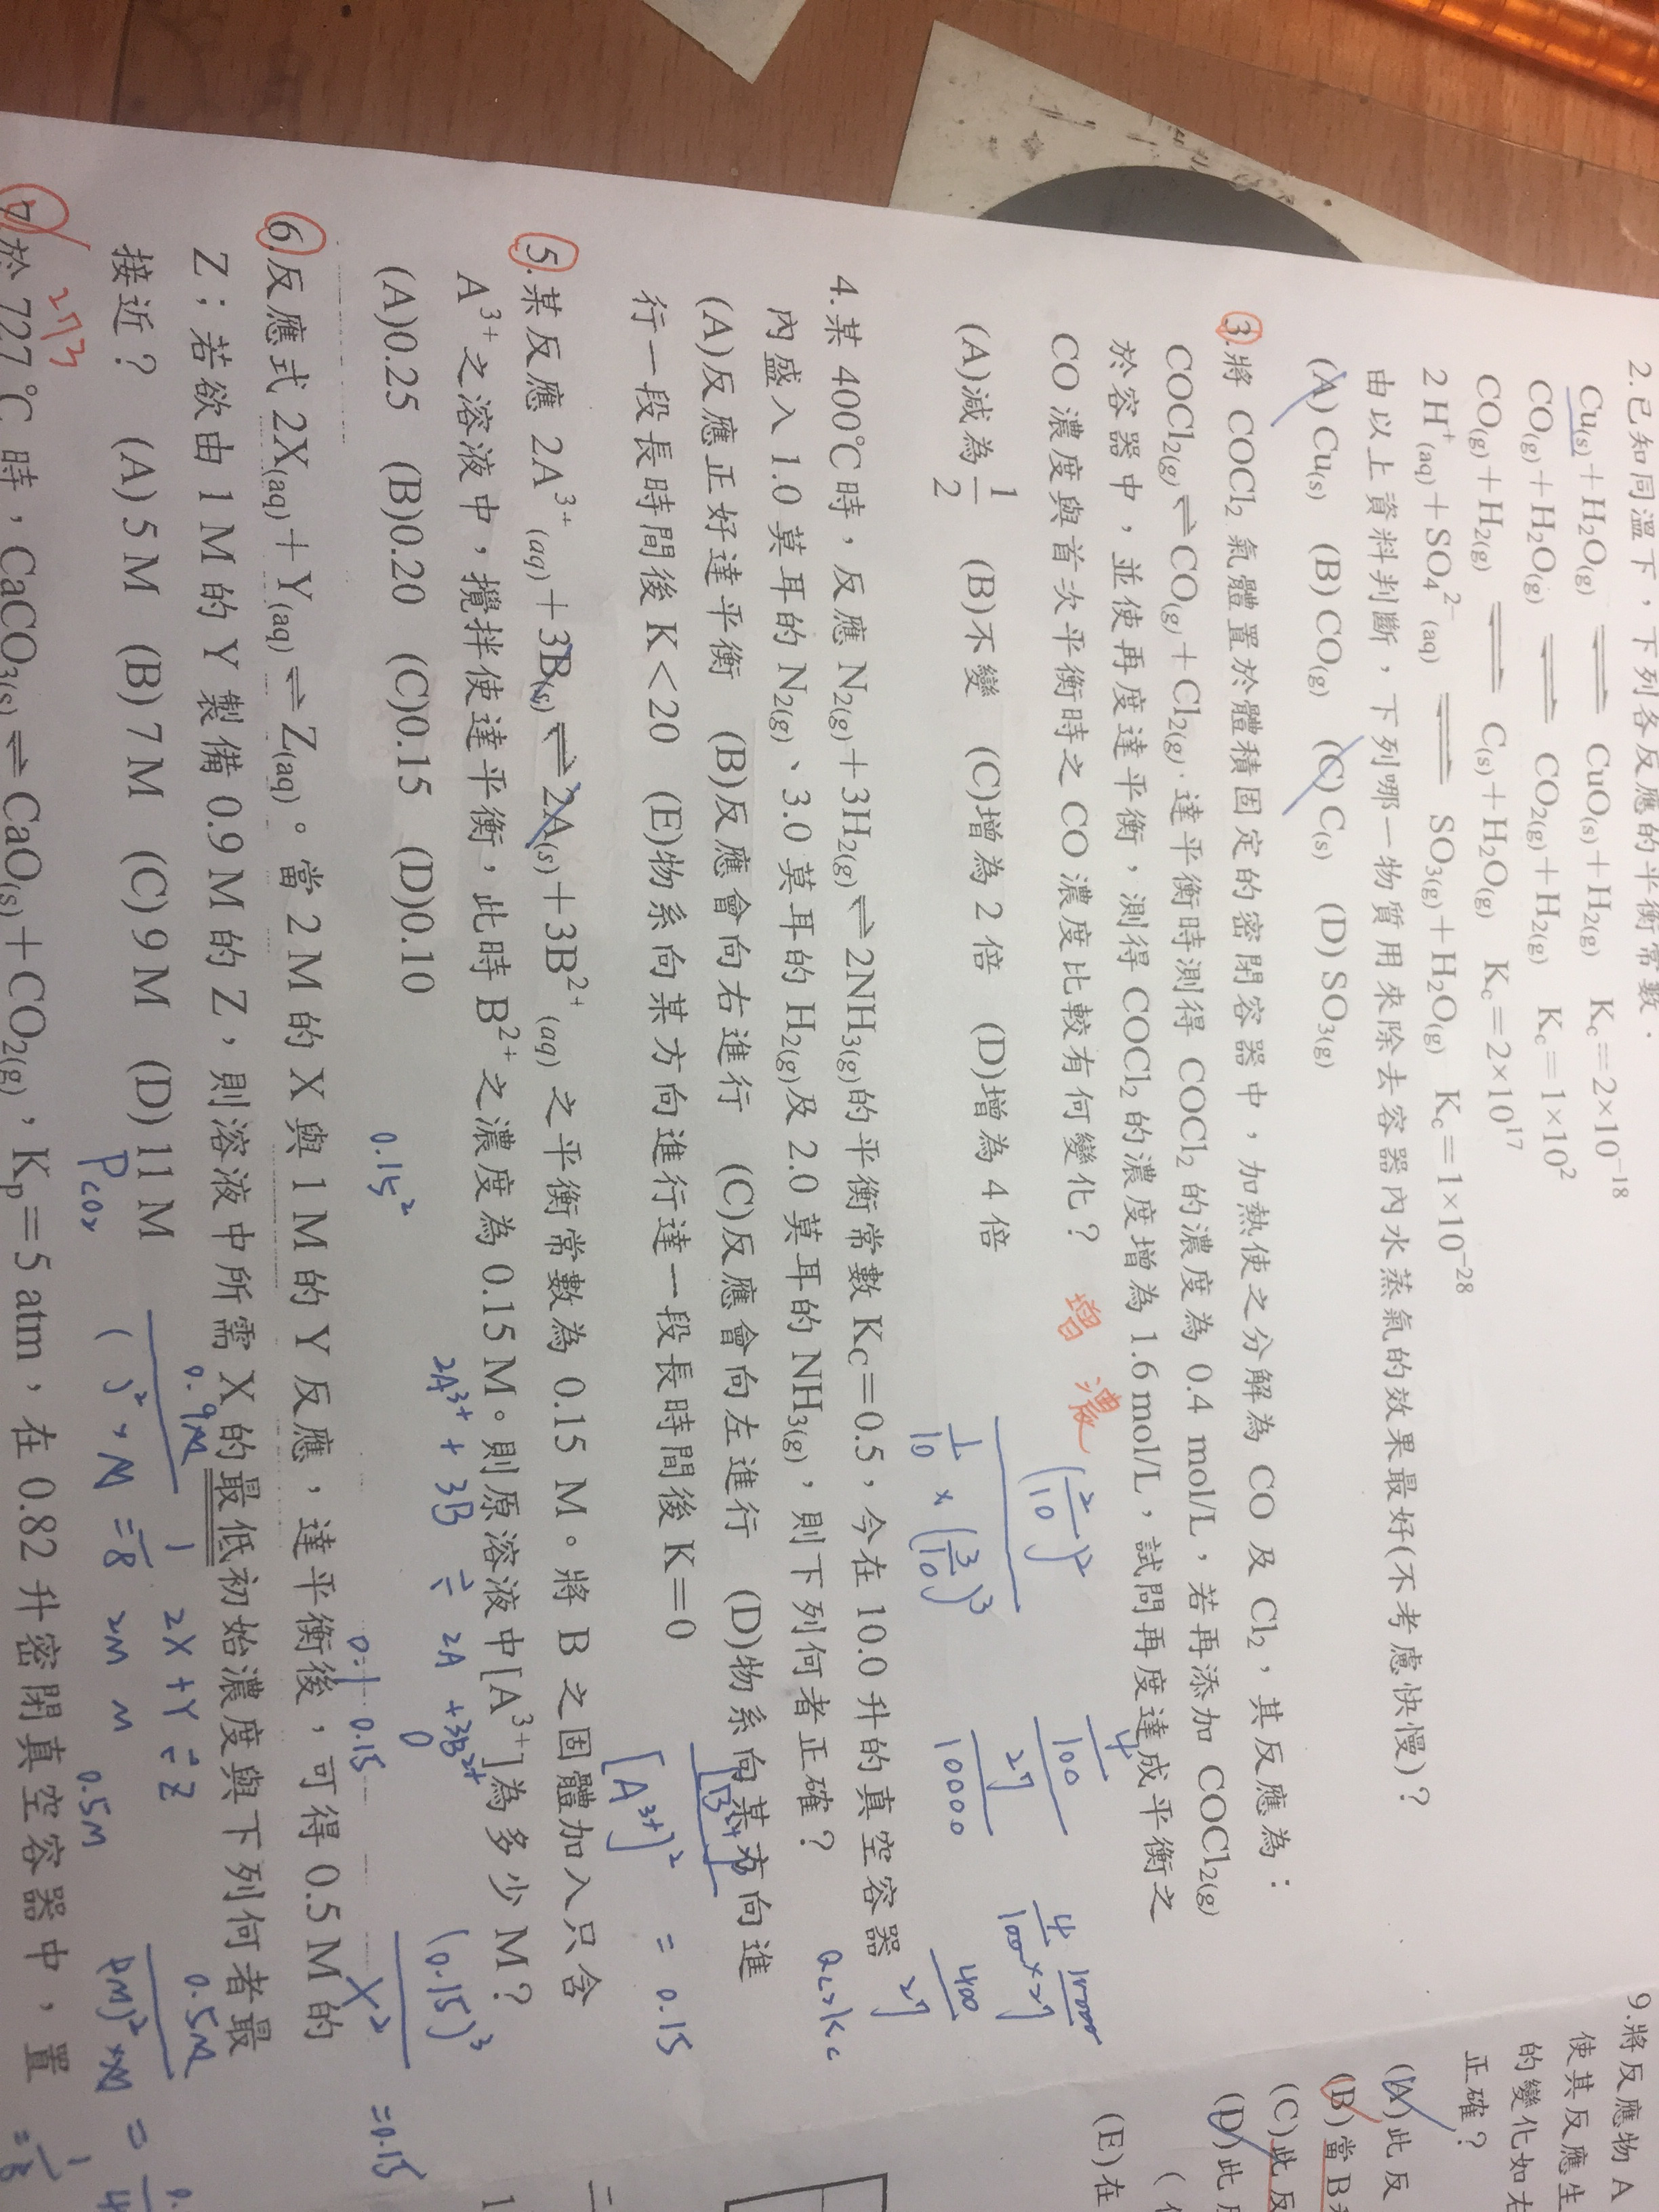 2.已知同溫下，下列各反應的平衡常數．
Cu(s)＋H2O(g) ⇌ CuO(s)＋H2(g) Kc＝2×10⁻¹⁸
CO(g)＋H2O(g) ⇌ CO2(g)＋H2(g) Kc＝1×10²
CO(g)＋H2(g) ⇌ C(s)＋H2O(g) Kc＝2×10¹⁷
2 H⁺(aq)＋SO4²⁻(aq) ⇌ SO3(g)＋H2O(g) Kc＝1×10⁻²⁸
由以上資料判斷，下列哪一物質用來除去容器內水蒸氣的效果最好(不考慮快慢)？
(A) Cu(s) (B) CO(g) (C) C(s) (D) SO3(g)
3.將 COCl2 氣體置於體積固定的密閉容器中，加熱使之分解為 CO 及 Cl2，其反應為：
COCl2(g)⇌CO(g)＋Cl2(g)．達平衡時測得 COCl2 的濃度為 0.4 mol/L，若再添加 COCl2(g)
於容器中，並使再度達平衡，測得 COCl2 的濃度增為 1.6 mol/L，試問再度達成平衡之
CO 濃度與首次平衡時之 CO 濃度比較有何變化？ 增 濃
(A)減為 1/2 (B)不變 (C)增為 2 倍 (D)增為 4 倍
(2/10)²
1/10 × (3/10)³
4/100
27/10000
4/100 × 10000/27
400/27
Qc>Kc
4.某 400℃時，反應 N2(g)＋3H2(g)⇌2NH3(g)的平衡常數 KC＝0.5，今在 10.0 升的真空容器
內盛入 1.0 莫耳的 N2(g)、3.0 莫耳的 H2(g)及 2.0 莫耳的 NH3(g)，則下列何者正確？
(A)反應正好達平衡 (B)反應會向右進行 (C)反應會向左進行 (D)物系向某方向進
行一段長時間後 K＜20 (E)物系向某方向進行達一段長時間後 K＝0
[A³⁺]² = 0.15
5.某反應 2A³⁺(aq)＋3B(s)⇌2A(s)＋3B²⁺(aq) 之平衡常數為 0.15 M。將 B 之固體加入只含
A³⁺之溶液中，攪拌使達平衡，此時 B²⁺之濃度為 0.15 M。則原溶液中[A³⁺]為多少 M？
(A)0.25 (B)0.20 (C)0.15 (D)0.10
2A³⁺ + 3B ⇌ 2A + 3B²⁺
0
0.15²
0.1 0.15
(0.15)³
X² =0.15
6.反應式 2X(aq)＋Y(aq)⇌Z(aq)。當 2 M 的 X 與 1 M 的 Y 反應，達平衡後，可得 0.5 M 的
Z；若欲由 1 M 的 Y 製備 0.9 M 的 Z，則溶液中所需 X 的最低初始濃度與下列何者最
接近？ (A) 5 M (B) 7 M (C) 9 M (D) 11 M
0.9M
2X + Y ⇌ Z
2M M
0.5M
0.5M
PCO2
273
7.於 727℃時，CaCO3(s)⇌CaO(s)＋CO2(g)，Kp＝5 atm，在 0.82 升密閉真空容器中，置
9.將反應物 A
使其反應生
的變化如右
正確？
(A)此反
(B)當 B
(C)此反
(D)此
(E)在